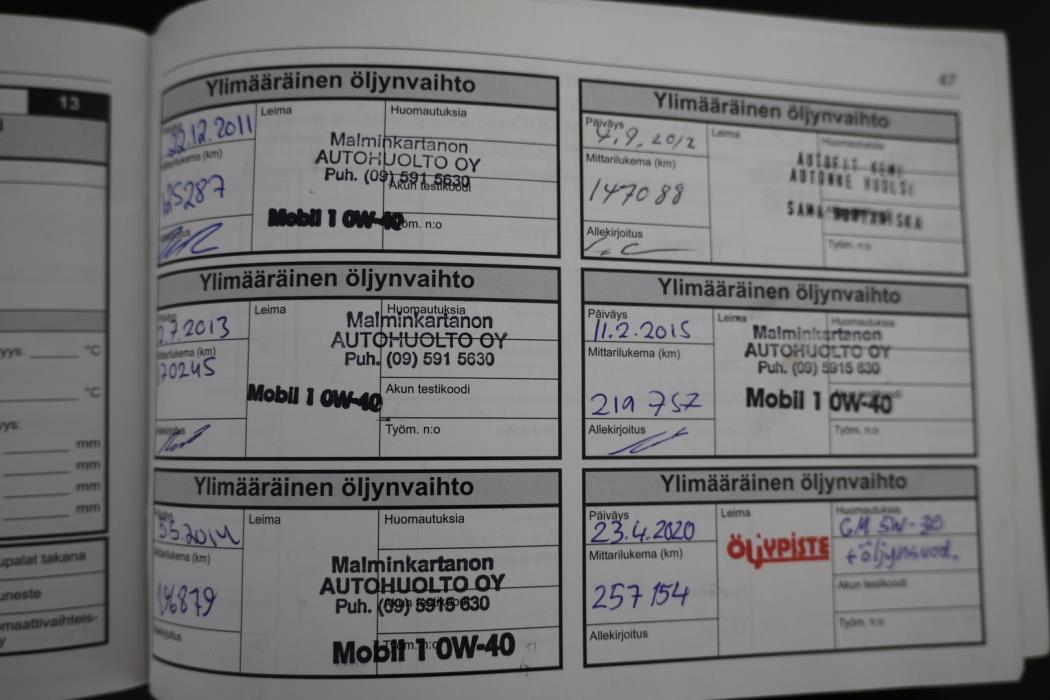 13
yys: ______ °C
°C
yys:
mm
mm
mm
mm
upalat takana
uneste
maattivaihteis-
y
47
Ylimääräinen öljynvaihto
.12.2011
Leima
Huomautuksia
Mittarilukema (km)
125287
Malminkartanon
AUTOHUOLTO OY
Puh. (09) 591 5630
Akun testikoodi
Mobil 1 0W-40
Työm. n:o
Allekirjoitus
Ylimääräinen öljynvaihto
Päiväys
4.9.2012
Leima
Huomautuksia
Mittarilukema (km)
147088
Allekirjoitus
Työm. n:o
Ylimääräinen öljynvaihto
.7.2013
Leima
Huomautuksia
Mittarilukema (km)
170245
Malminkartanon
AUTOHUOLTO OY
Puh. (09) 591 5630
Akun testikoodi
Mobil 1 0W-40
Työm. n:o
Allekirjoitus
Ylimääräinen öljynvaihto
Päiväys
11.2.2015
Leima
Huomautuksia
Mittarilukema (km)
219 757
Malminkartanon
AUTOHUOLTO OY
Puh. (09) 5915 630
Mobil 1 0W-40
Allekirjoitus
Työm. n:o
Ylimääräinen öljynvaihto
5.5.2014
Leima
Huomautuksia
Mittarilukema (km)
196879
Malminkartanon
AUTOHUOLTO OY
Puh. (09) 5915 630
Mobil 1 0W-40
Työm. n:o
Allekirjoitus
Ylimääräinen öljynvaihto
Päiväys
23.4.2020
Leima
Huomautuksia
GM 5W-30
+öljynsuod.
Mittarilukema (km)
257 154
ÖLJYPISTE
Akun testikoodi
Työm. n:o
Allekirjoitus